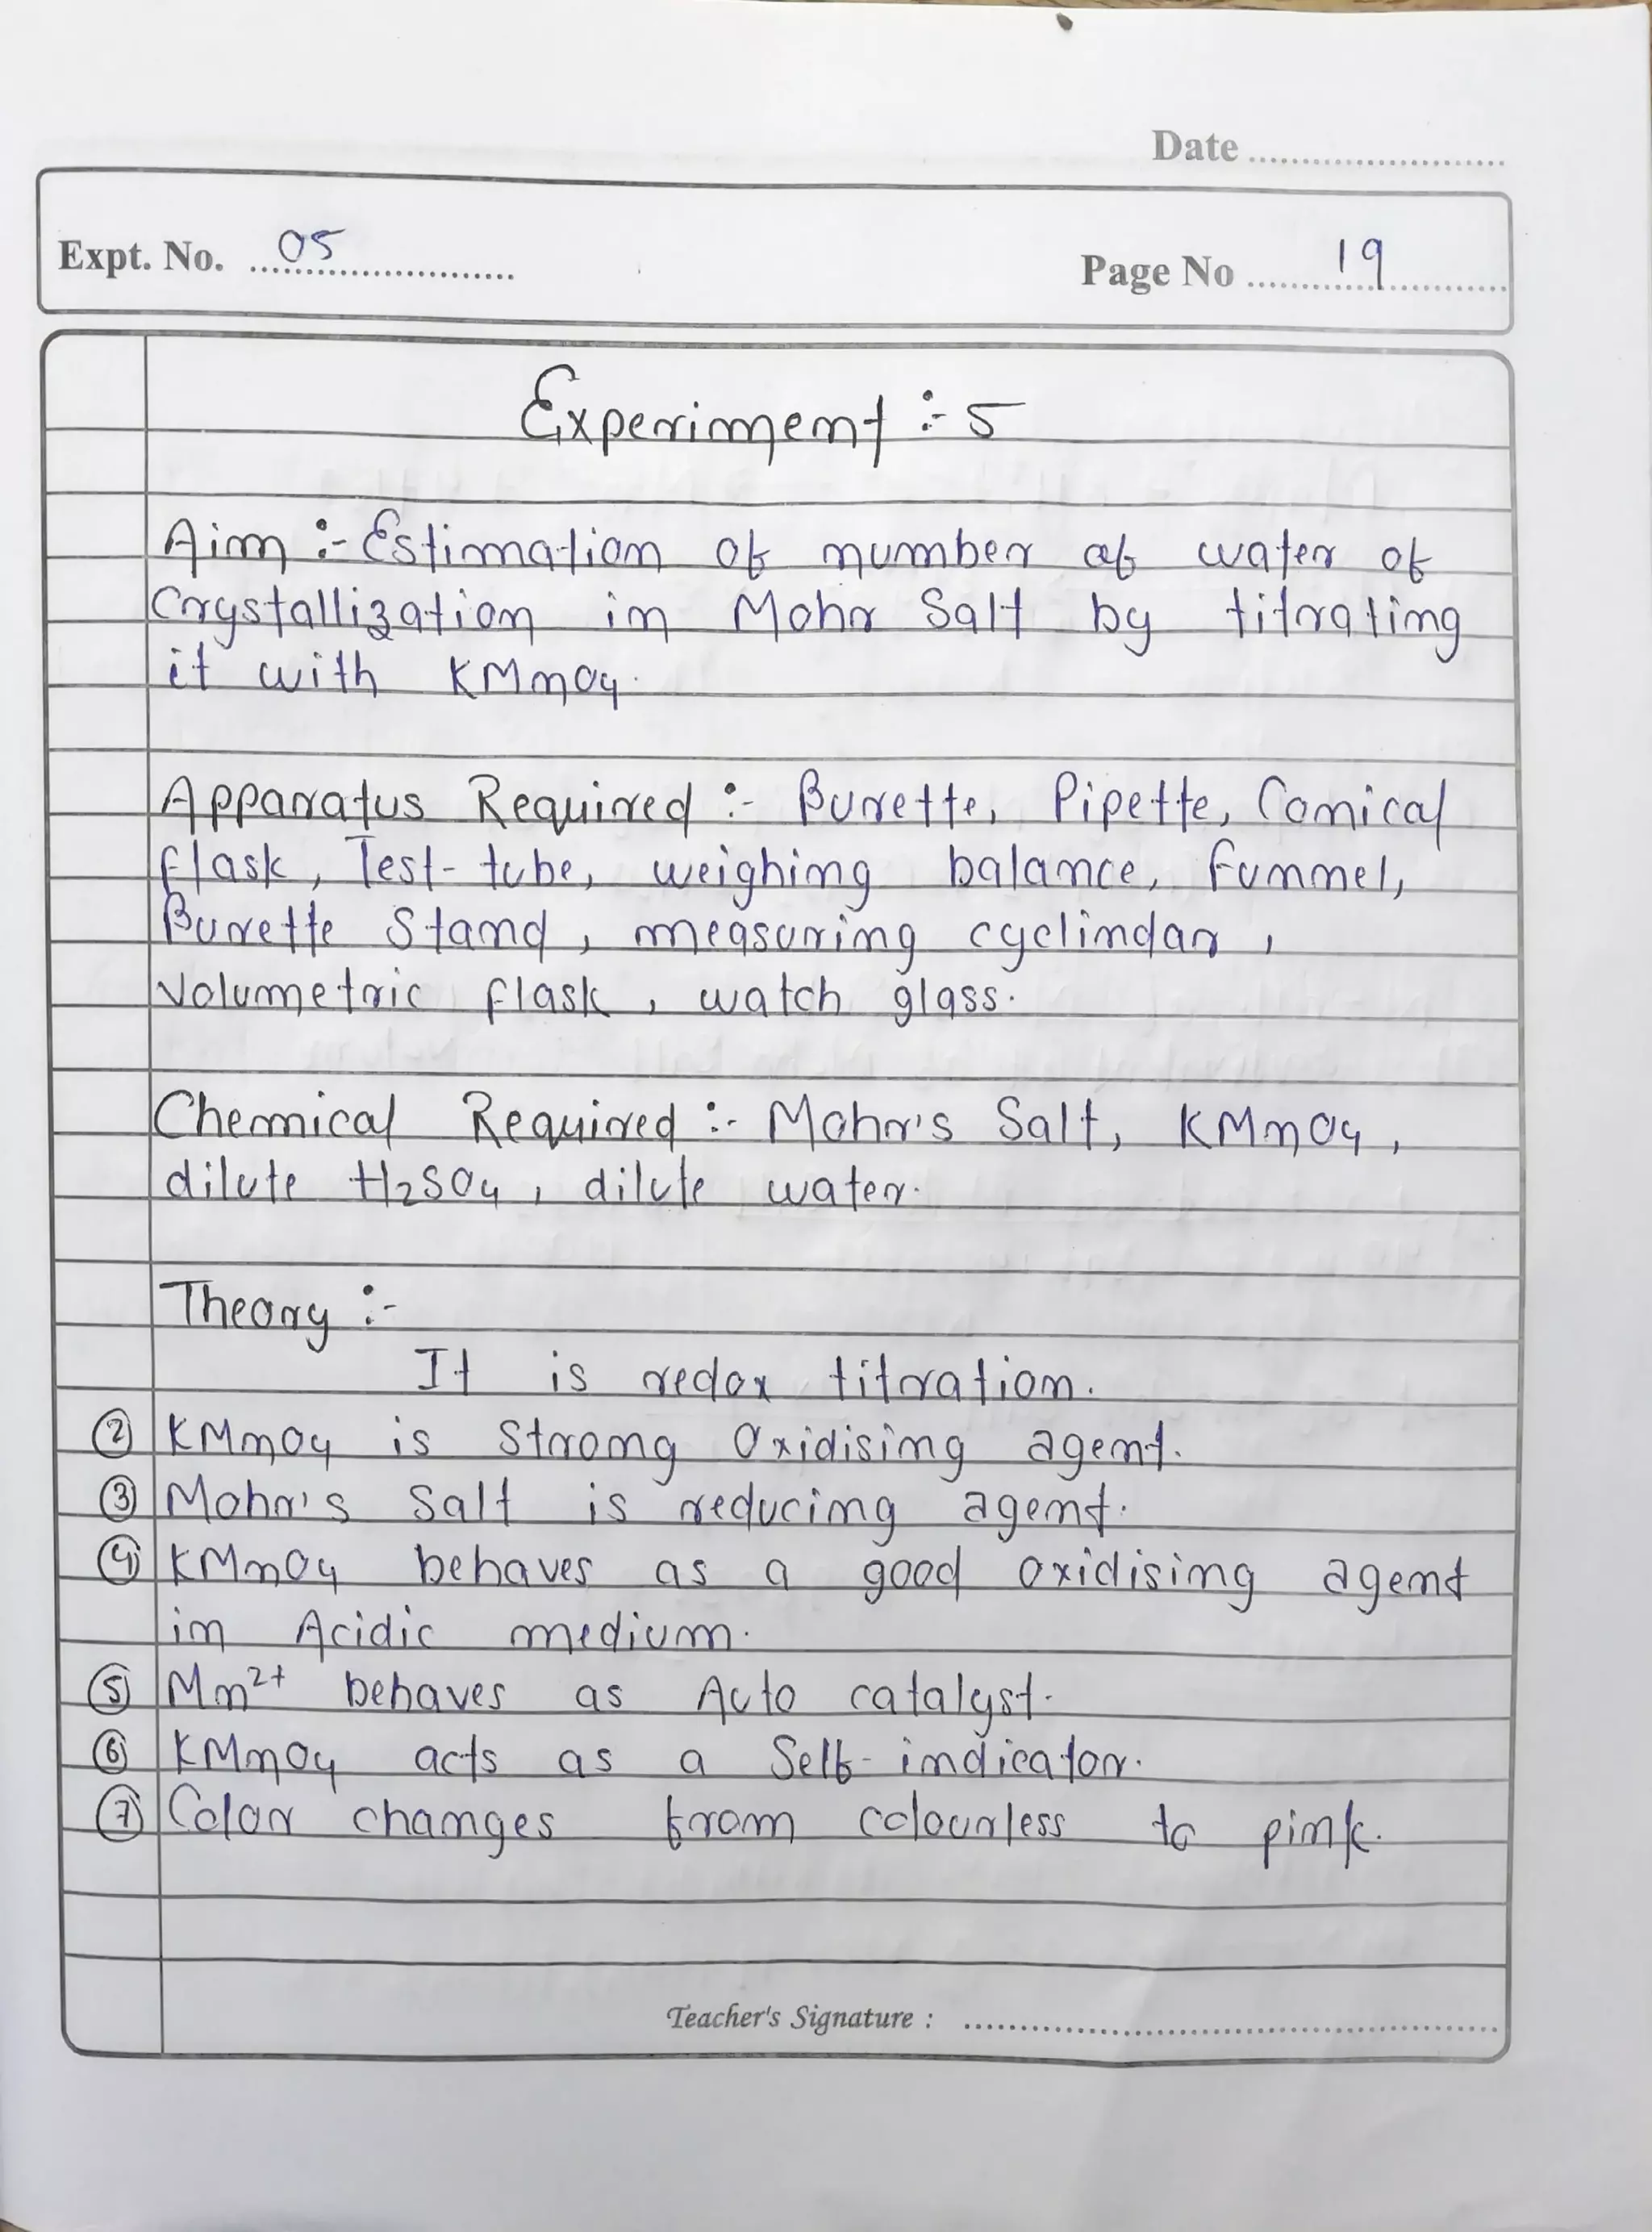 Date
Expt. No. 05
Page No 19
Experiment :- 5
Aim :- Estimation of number of water of
Crystallization in Mohr Salt by titrating
it with KMnO4.
Apparatus Required :- Burette, Pipette, Conical
flask, Test-tube, weighing balance, funnel,
Burette Stand, measuring cyclindar,
Volumetric flask, watch glass.
Chemical Required :- Mohr's Salt, KMnO4,
dilute H2SO4, dilute water.
Theory :-
It is redox titration.
② KMnO4 is Strong Oxidising agent.
③ Mohr's Salt is reducing agent.
④ KMnO4 behaves as a good oxidising agent
in Acidic medium.
⑤ Mn2+ behaves as Auto catalyst.
⑥ KMnO4 acts as a Self-indicator.
⑦ Color changes from colourless to pink.
Teacher's Signature :